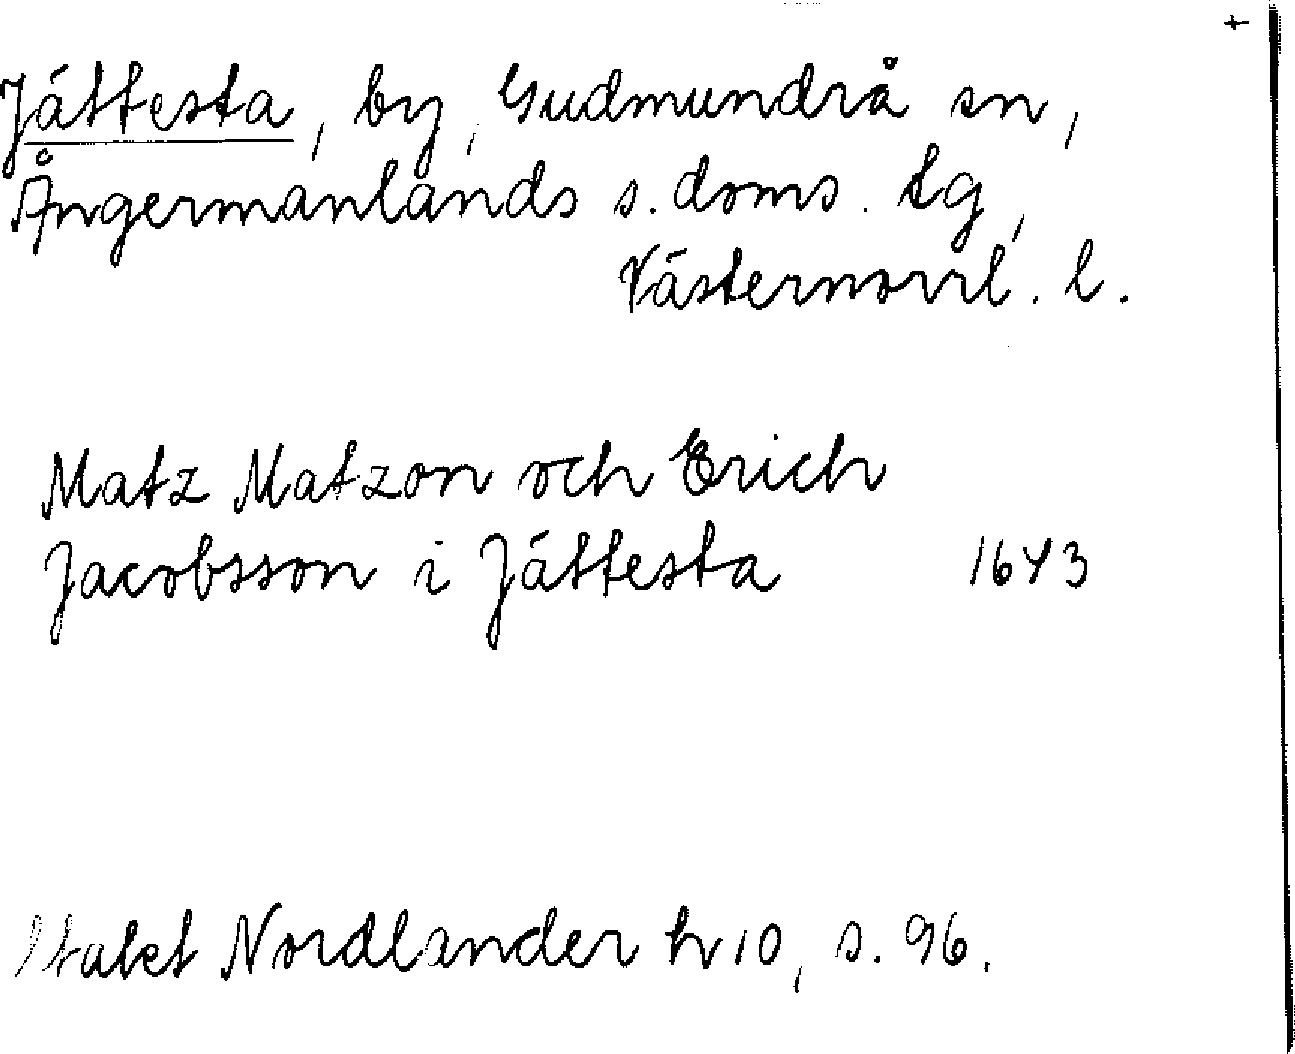 +
Jättesta, by, Gudmundrå sn,
Ångermanlands s. doms. tg,
Västernorrl. l.
Matz Matzon och Erich
Jacobsson i Jättesta 1643
Nordlander h 10, s. 96.